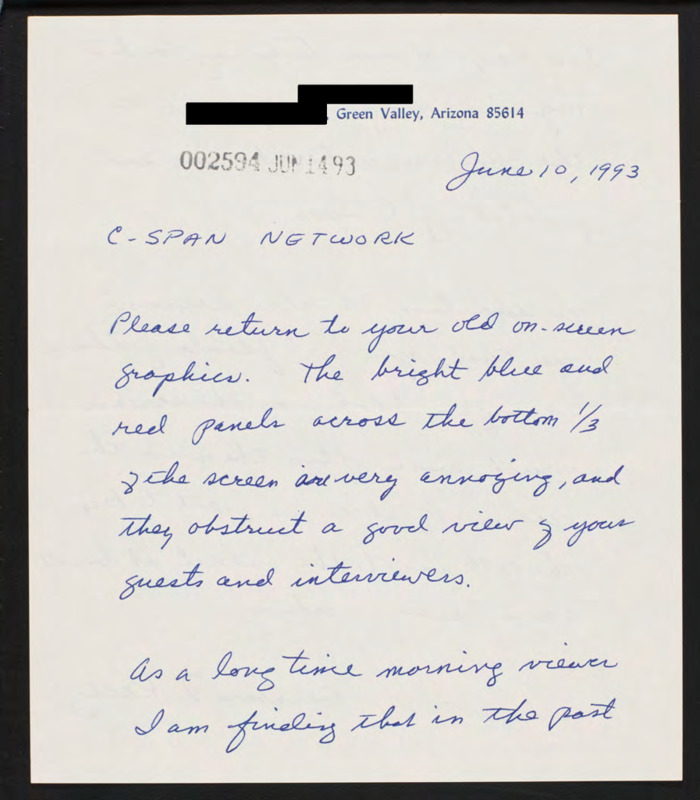 , Green Valley, Arizona 85614
002594 JUN 14 93
June 10, 1993
C-SPAN NETWORK
Please return to your old on-screen
graphics. The bright blue and
red panels across the bottom 1/3
of the screen are very annoying, and
they obstruct a good view of your
guests and interviewers.
As a long time morning viewer
I am finding that in the past